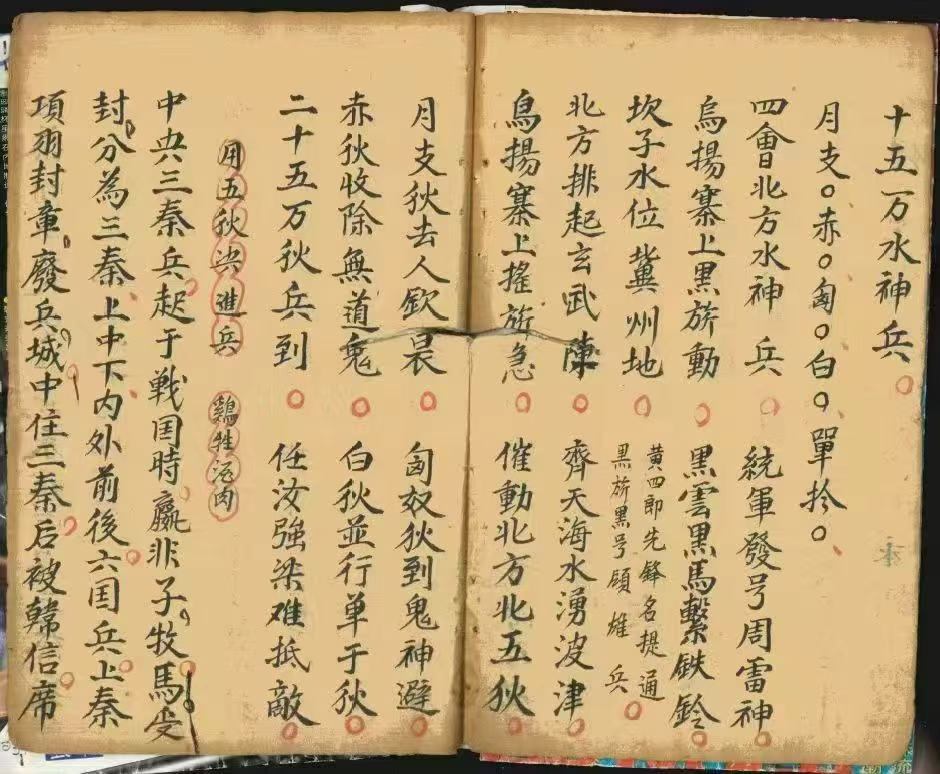 十五万水神兵
月支赤匈白單扵
四會北方水神兵 統軍發号周雷神
烏揚寨上黑旂動 黑雲黑馬繫鉄鈴
坎子水位冀州地 黄四郎先鋒名提通
黑旂黑号顾雄兵
北方排起玄武陳 齊天海水湧波津
烏揚寨上搖旂急 催動北方北五狄
月支狄去人欽晨 匈奴狄到鬼神避
赤狄收除無道鬼 白狄並行单于狄
二十五万狄兵到 任汝強梁难抵敵
用五狄决進兵 鷄牲酒肉
中央三秦兵起于戦国時嬴非子牧馬受
封分為三秦上中下内外前後六国兵上秦
項羽封章廢兵城中住三秦后被韓信席